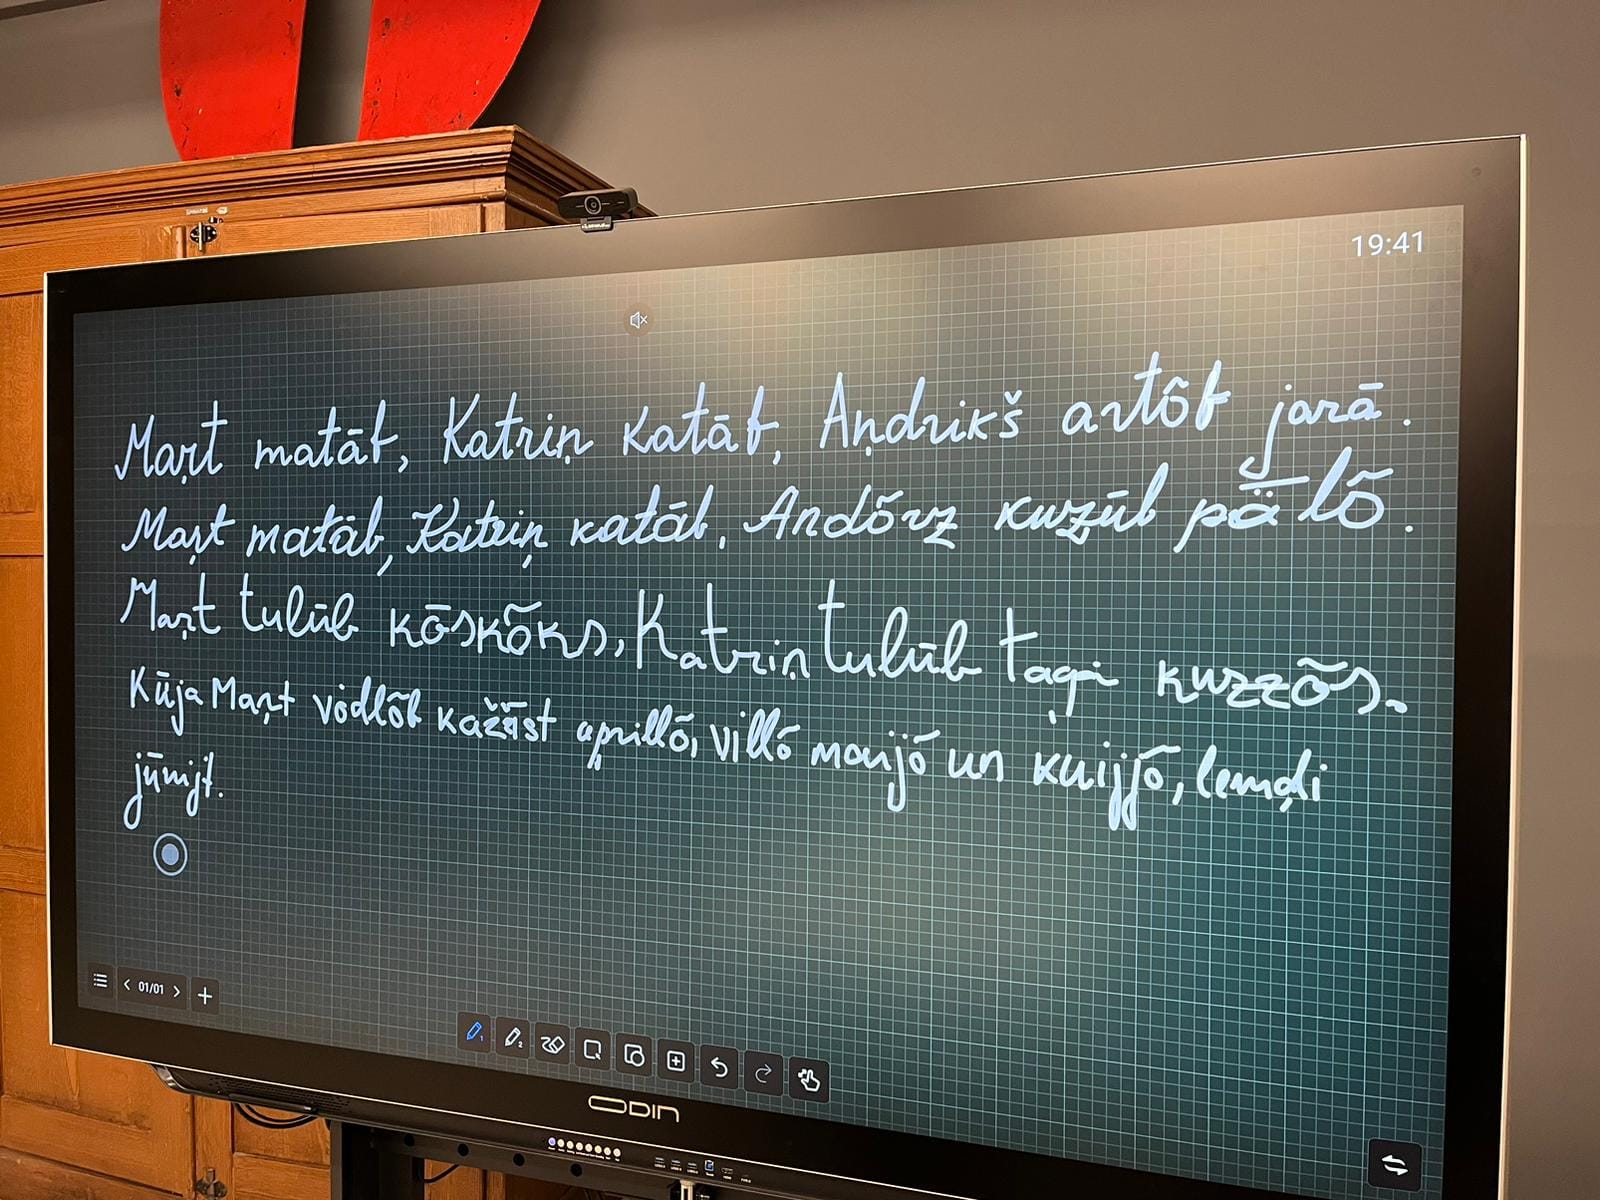 19:41
Maŗt matāb, Katriņ katāb, Aņdrikš artõb jarā.
Maŗt matāb, Katriņ katāb, Andõrz kuzūb pǟlõ.
Maŗt tulūb kōskõks, Katriņ tulūb tagi kuzzõs.
Kūja Maŗt vȯdlõb kažāst aprillõ, villõ maijõ un kuijjõ, lemḑi
jūnijt.
01/01
ODIN